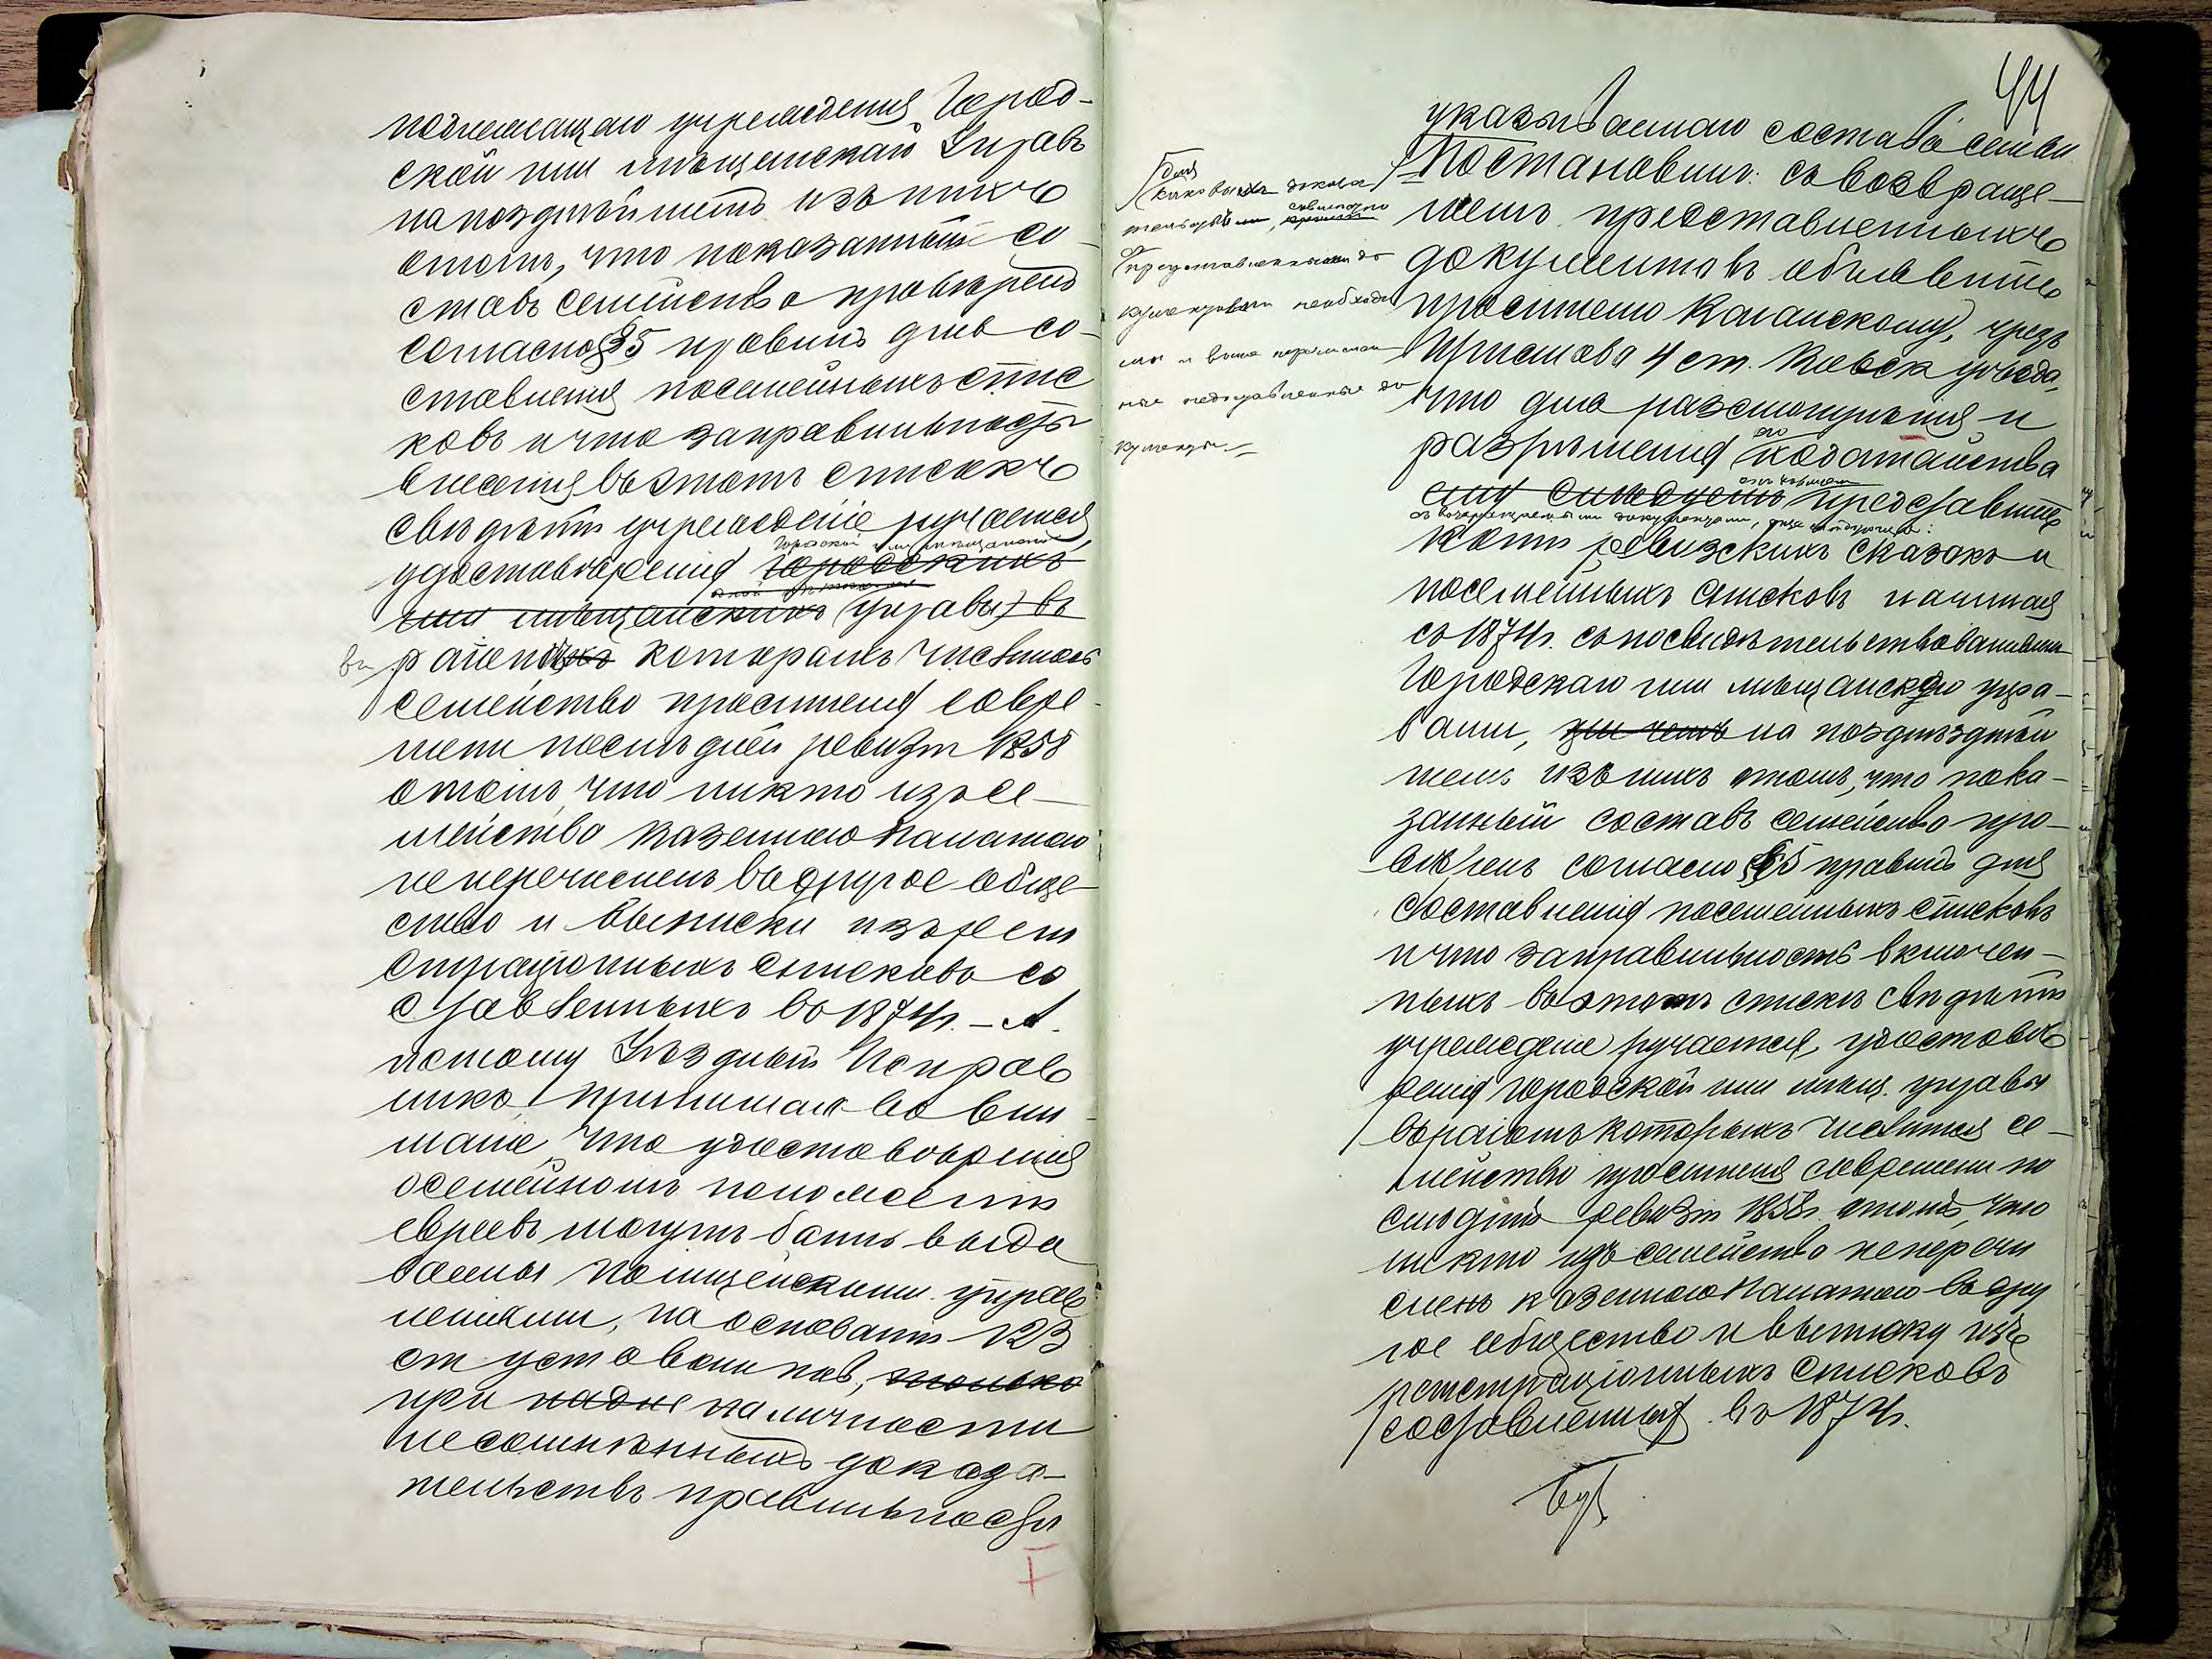 подлежащаго учрежденія, Город-
ской или мѣщанской Управъ
на позднѣйшемъ изъ нихъ
о томъ, что показанный со-
ставъ семейства провѣренъ
согласно § 5 правилъ для со-
ставленія посемейныхъ спис
ковъ и что за правильность
внесенія въ этотъ списокъ
свѣдѣній учрежденіе ручается,
Городской или мѣщанской
удостовѣренія городскихъ
или мѣщанскихъ (управы) въ
въ раіонѣ которыхъ числилось
семейство просителя со вре-
мени послѣдней ревизіи 1858
о томъ, что никто изъ се-
мейства Казенною Палатою
не перечисленъ въ другое обще-
ство и выписки изъ реги
страціонныхъ списковъ со
ставленныхъ въ 1874 г. – А
потому Уѣздный Исправ
никъ, принимая во вни-
маніе, что удостовѣренія
о семейномъ положеніи
евреевъ могутъ быть выда
ваемы полицейскими управ
леніями, на основаніи 123
ст уст о воин пов, только
при наличности
несомнѣнныхъ доказа-
тельствъ правильности
I
44
указываемаго состава семьи
Постановилъ: съ возвраще-
ніемъ представленныхъ
документовъ объявить
просителю Каганскому, чрезъ
Пристава 4 ст. уѣзда,
что для разсмотрѣнія и
разрѣшенія его ходатайства
ему слѣдуетъ представить
съ возвращаемыми документами, еще слѣдующіе:
копіи ревизскихъ сказокъ и
посемейныхъ списковъ начиная
съ 1874 г. съ посвидѣтельствованіемъ
Городскаго или мѣщанскаго упра-
вами, на позднѣйшемъ
изъ нихъ о томъ, что пока-
занный составъ семейства про-
вѣренъ согласно § 5 правилъ для
составленія посемейныхъ списковъ
и что за правильность включен-
ныхъ въ этотъ списокъ свѣдѣній
учрежденіе ручается, удостовѣ
ренія Городской или мѣщ. управы
въ раіонѣ которыхъ числится се-
мейство просителя со времени по
слѣдней ревизіи 1858 г. о томъ, что
никто изъ семейства не перечи
сленъ Казенною Палатою въ дру
гое общество и выписку изъ
регистраціонныхъ списковъ
составленныхъ въ 1874 г.
для
каковыхъ доказа
тельствъ
представленными до
кументами необходи
мы и выше перечислен
ные недоставленные до
кументы. =